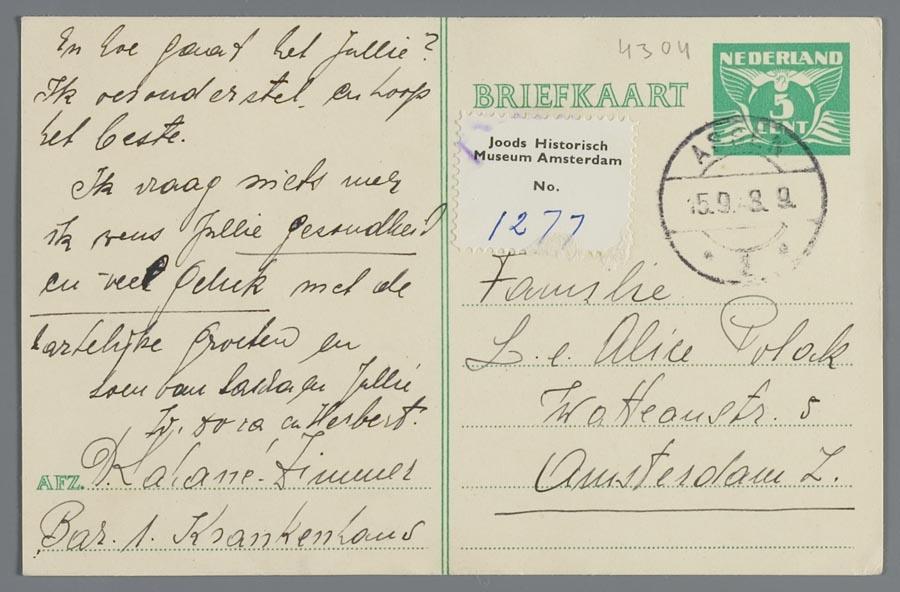 En hoe gaat het Jullie?
Ik verondestel en hoop
het beste.
Ik vraag niets meer
ik wens Jullie gesondheid
en veel geluk met de
hartelijke groeten en
soen van Jullie
en Herbert.
AFZ. Zimmer
Bar. 1. Krankenhaus
4304
BRIEFKAART
NEDERLAND
5
CENT
Joods Historisch
Museum Amsterdam
No.
1277
ASSEN
15.9. 9
1
Familie
L. e. Alice Polak
Watteaustr. 5
Amsterdam Z.